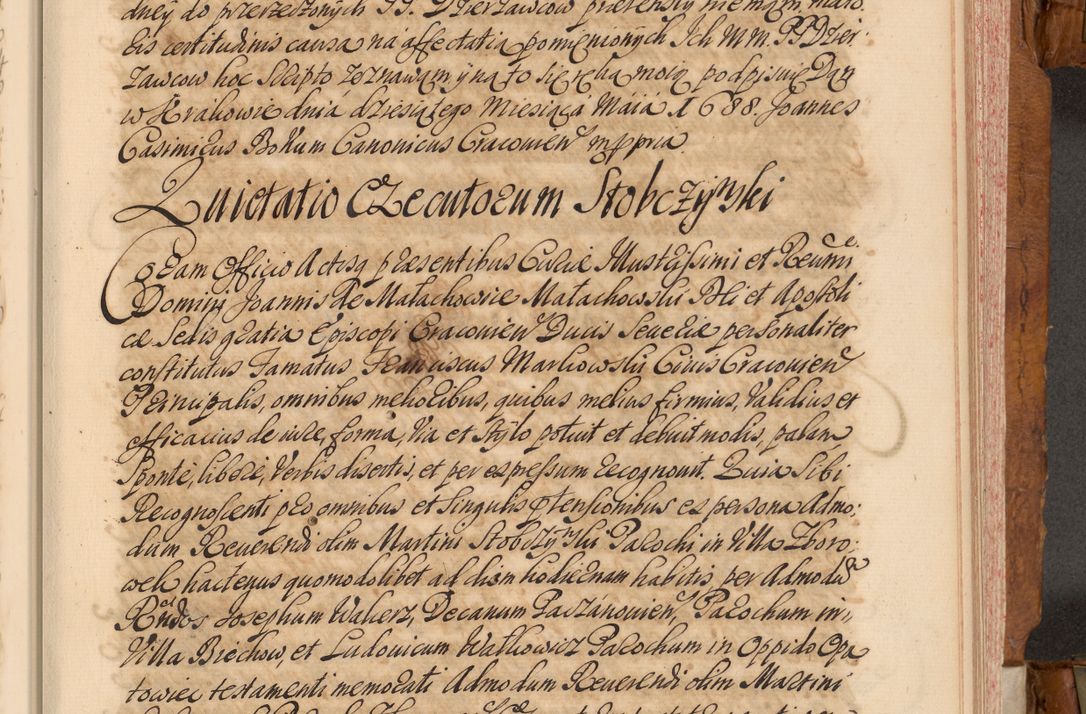 dney do przerzeczonych JJ. Dzierzawcow pretensÿ nie mam, mato
bis certitudinis causa na affectatią pomienionych Ich Mm. PP Dzier
zawcow hoc Scripto zeznawam ÿ na to się ręką moią podpisuię Dan
w Krakowie dnia dziesiątego Miesiąca Máiá 1688. Joannes
Casimirus Bokum Canonicus Cracovien mppria
Quietatio Executorum Stobczÿnski
Coram Officio Actisq præsentibus Curiæ Illustrissimi et Reverendissimi
Domini Joannis de Małachowice Małachowski Dei et Apostoli
cæ Sedis gratia Episcopi Cracovien Ducis Severiæ personaliter
constitutus Famatus Franciscus Markowski Civis Cracovien
Principalis, omnibus melioribus, quibus melius firmius, validius et
efficacius de iure, forma, via et Stÿlo potuit et debuit modis, palam
Sponte, libere, verbis disertis, et per expressum recognovit. Quia Sibi
Recognoscenti pro omnibus et Singulis prtensionibus ex persona Admo:
dum Reverendi olim Martini Stobczÿnski Parochi in Villa Zboro:
wek hactenus quomodolibet ad diem hodiernam habitis, per Admodu
Rndos Josephum Walierz, Decanum Paczanovien, Parochum in
Villa Biechow, et Ludovicum Wałkowicz Parochum in Oppido Opa
towiec testamenti memorati Admodum Reverendi olim Martini